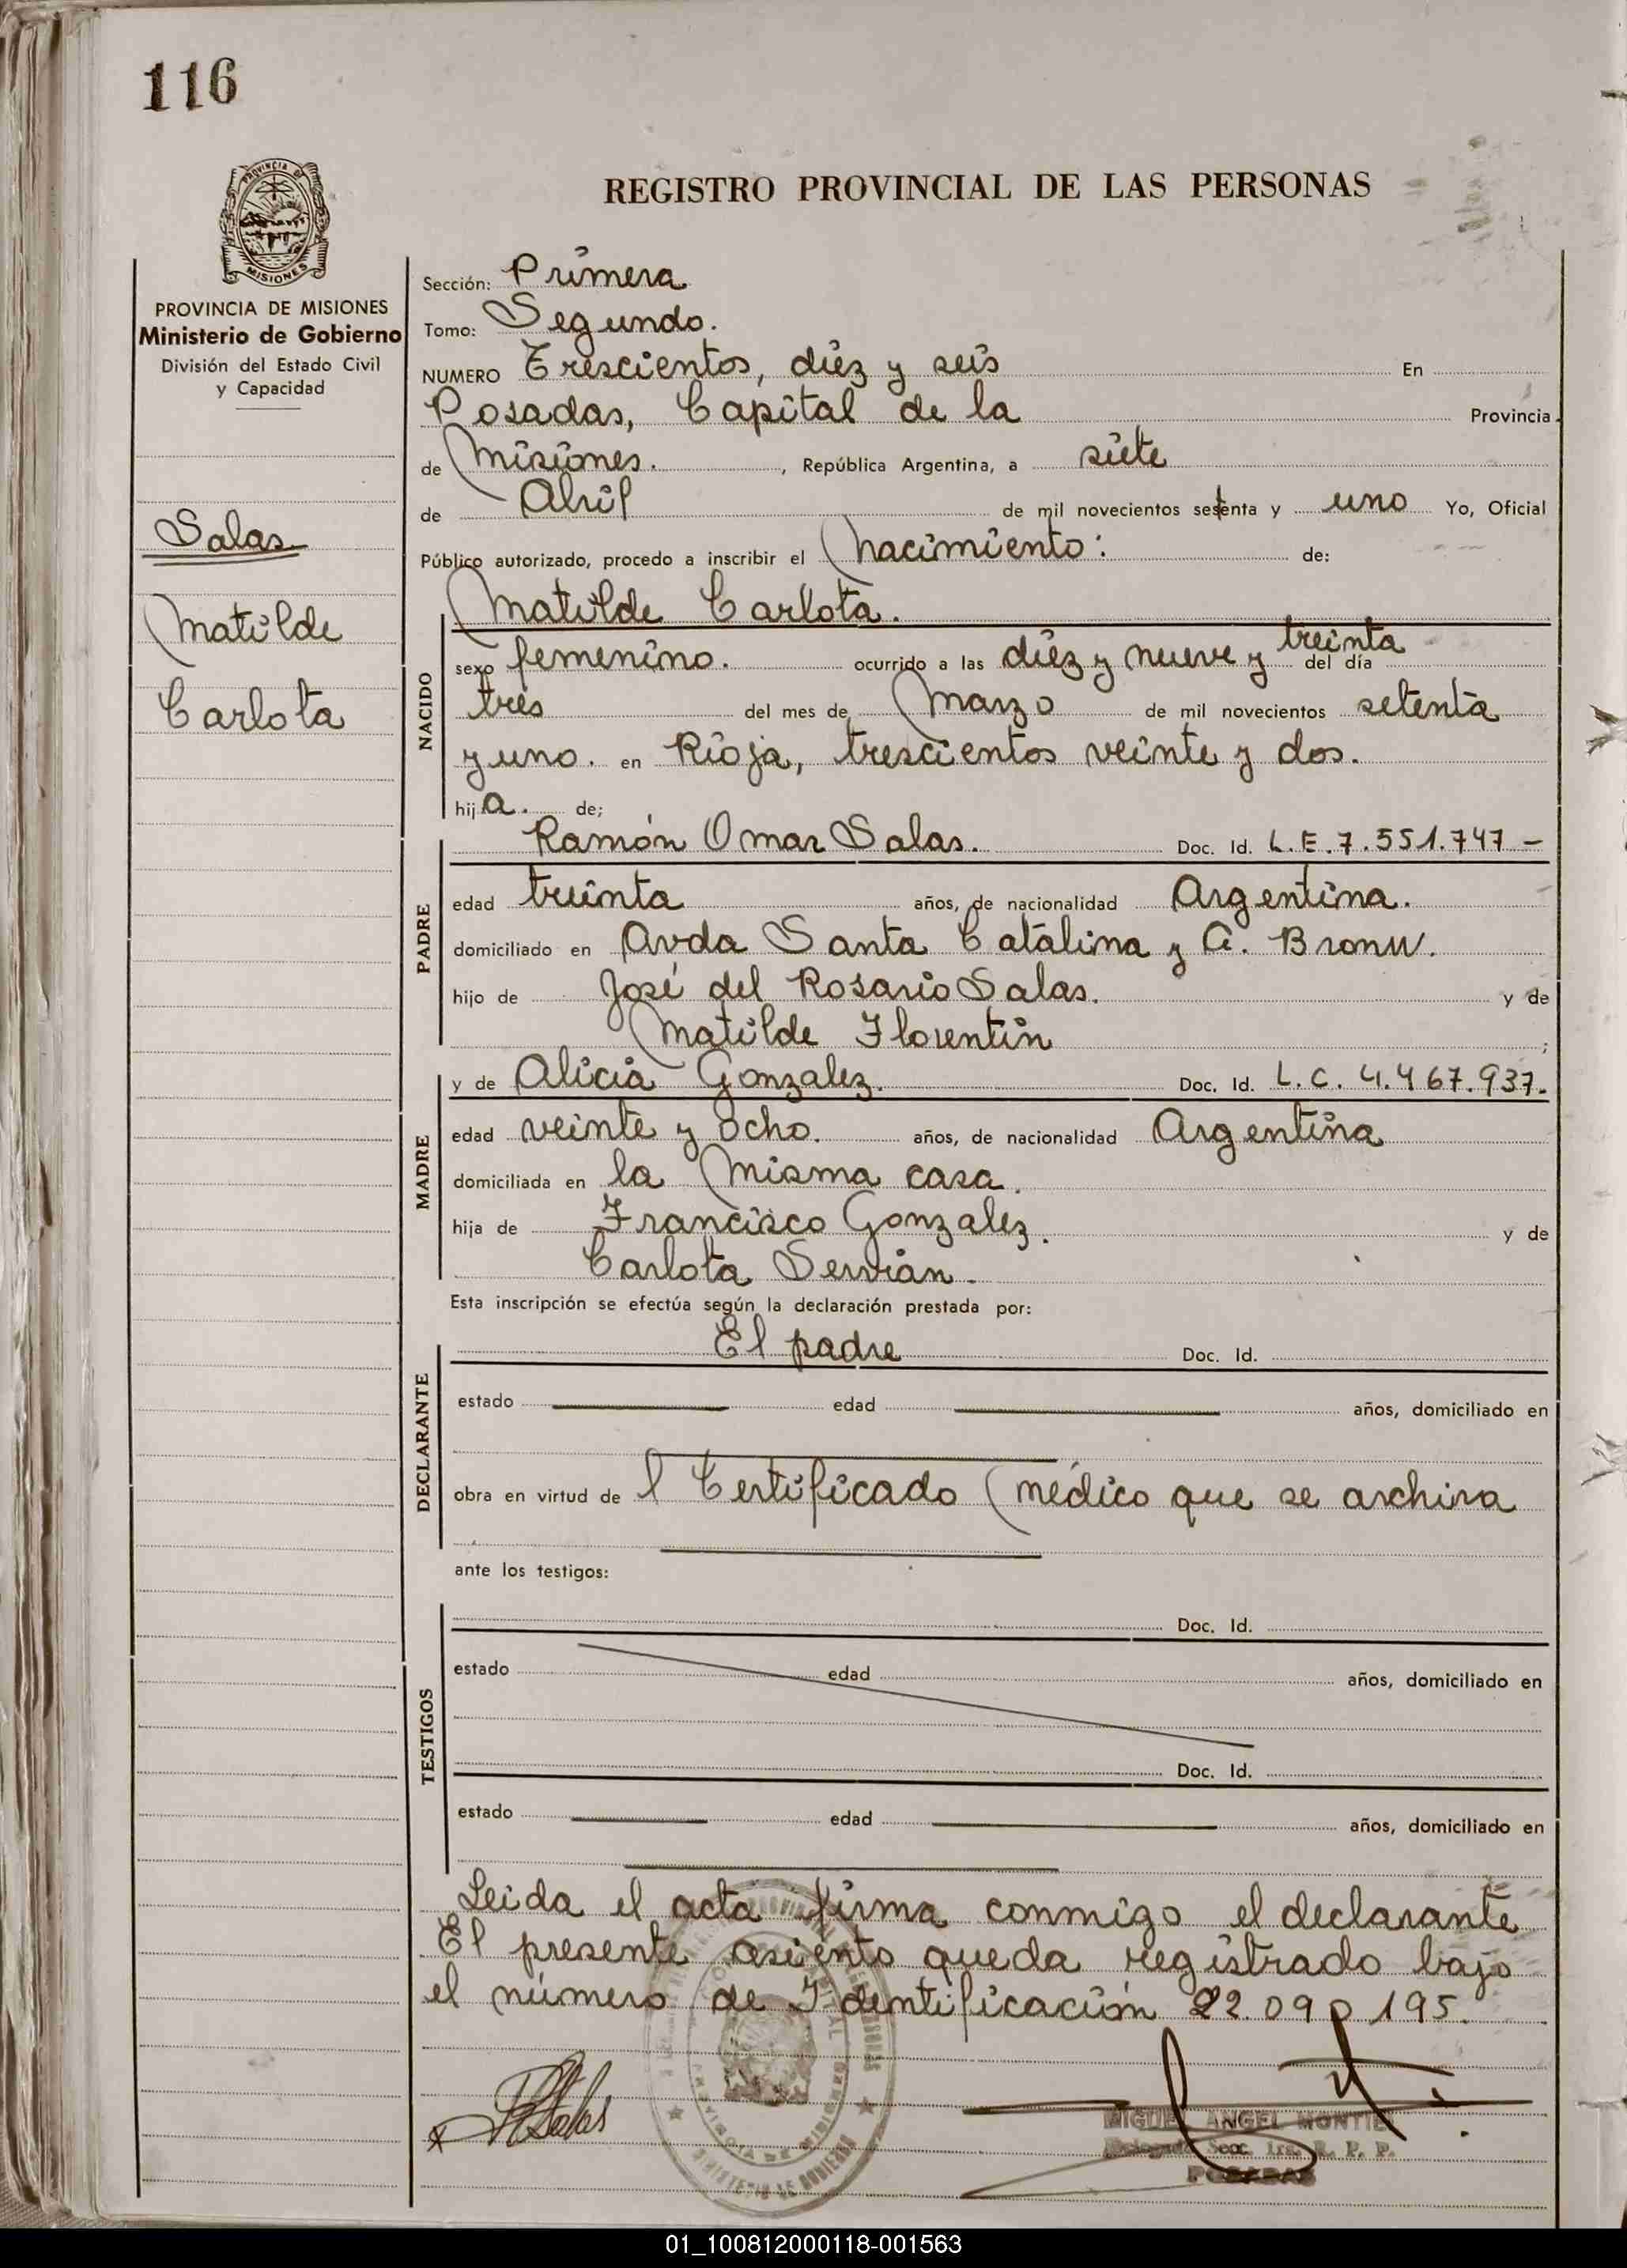 116
PROVINCIA DE
MISIONES
REGISTRO PROVINCIAL DE LAS PERSONAS
PROVINCIA DE MISIONES
Ministerio de Gobierno
División del Estado Civil
y Capacidad
Salas
Matilde
Carlota
Sección: Primera
Tomo: Segundo.
NUMERO Trescientos, diéz y seis En
Posadas, Capital de la Provincia
de Misiones. , República Argentina, a siete
de Abril de mil novecientos setenta y uno Yo, Oficial
Público autorizado, procedo a inscribir el Nacimiento: de:
Matilde Carlota.
NACIDO
sexo femenino. ocurrido a las diéz y nueve y treinta del día
tres del mes de Marzo de mil novecientos setenta
y uno. en Rioja, trescientos veinte y dos.
hija. de;
PADRE
Ramón Omar Salas. Doc. Id. L.E. 7.551.747 –
edad treinta años, de nacionalidad Argentina.
domiciliado en Avda Santa Catalina y A. Bronw.
hijo de José del Rosario Salas. y de
Matilde Florentin ;
MADRE
y de Alicia Gonzalez. Doc. Id. L.C. 4.467.937.
edad veinte y ocho. años, de nacionalidad Argentina
domiciliada en la Misma casa.
hija de Francisco Gonzalez. y de
Carlota Servián.
Esta inscripción se efectúa según la declaración prestada por:
DECLARANTE
El padre Doc. Id.
estado edad años, domiciliado en
obra en virtud de l Certificado Médico que se archiva
ante los testigos:
TESTIGOS
Doc. Id.
estado edad años, domiciliado en
Doc. Id.
estado edad años, domiciliado en
Leida el acta firma conmigo el declarante
El presente asiento queda registrado bajo
el número de Identificación 22.090.195.
MIGUEL ANGEL MONTIEL
Delegado Secc. 1ra. R. P. P.
POSADAS
01_100812000118-001563